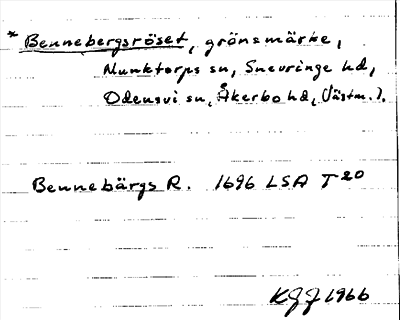 * Bennebergsröset, gränsmärke,
Munktorps sn, Snevringe hd,
Odensvi sn, Åkerbo hd, (Västm.).
Bennebärgs R. 1696 LSA T 20
KGJ 1966